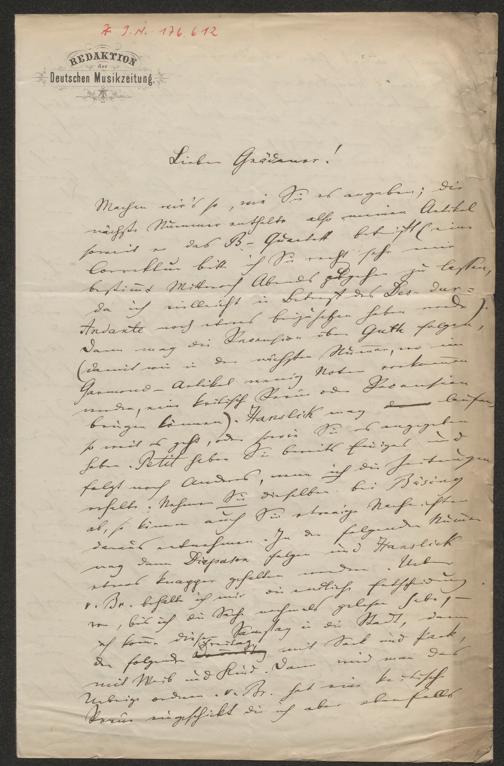 Z I.N. 176.612
REDAKTION
der
Deutschen Musikzeitung.
Lieber Grädener!
Machen wir's so, wie Sie es angeben; die
nächste Nummer enthalte also meinen Artikel
soweit er das B-Quartett betrifft (eine
Correktur bitte ich Sie recht sehr mir
bestimmt Mittwoch Abends zugehen zu lassen,
da ich vielleicht in Betreff des Des-dur-
Andante noch etwas beizusetzen haben werde).
Dann mag die Recension über Guth folgen,
(damit wir in der nächsten Nummer, wo im
Garmond-Artikel wenig Noten vorkommen
werden, eine kritisch Revue oder Recension
bringen können). Hanslick mag laufen
so weit es geht, oder wie Sie es angegeben
haben. Petit haben Sie bereits einiges und
folgt noch Anderes, wenn ich die Zeitungen
erhalte. Nehmen Sie dieselben bei Büsing
ab, so können auch Sie etwaige Nachrichten
daraus entnehmen. In der folgenden Nummer
mag dann Diapason folgen und Hanslick
etwas knapper gehalten werden. Ueber
v. Br. behalte ich mir die endliche Entscheidung
vor, bis ich die Sache nochmals gelesen habe; —
ich komme diesen Samstag in die Stadt, dann
den folgenden Freitag mit Sack und Pack,
mit Weib und Kind. Dann wird man das
Uebrige ordnen. v. Br. hat eine kritische
Revue eingeschickt die ich aber ebenfalls